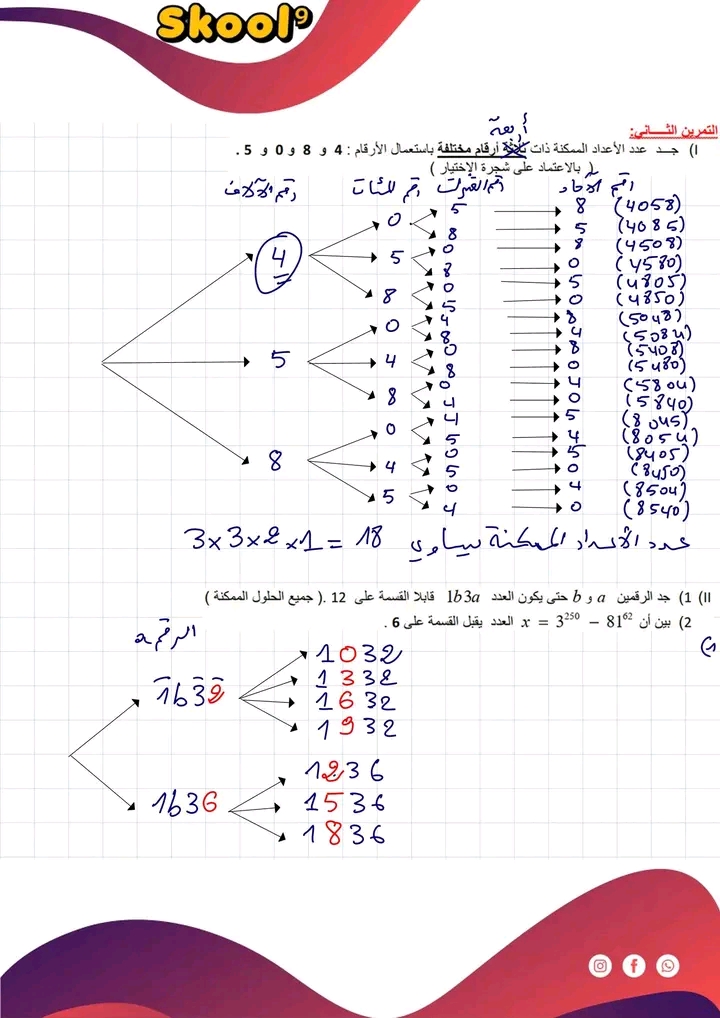 Skool⁹
التمرين الثـــاني:
أربعة
I) جــد عدد الأعداد الممكنة ذات ثلاثة أرقام مختلفة باستعمال الأرقام : 4 و 8 و 0 و 5 .
( بالاعتماد على شجرة الإختيار )
رقم الآلاف رقم المئات رقم العشرات رقم الآحاد
4 0 5 8 (4058)
8 5 (4085)
5 0 8 (4508)
8 0 (4580)
8 0 5 (4805)
5 0 (4850)
5 0 4 8 (5048)
8 4 (5084)
4 0 8 (5408)
8 0 (5480)
8 0 4 (5804)
4 0 (5840)
8 0 4 5 (8045)
5 4 (8054)
4 0 5 (8405)
5 0 (8450)
5 0 4 (8504)
4 0 (8540)
عدد الأعداد الممكنة يساوي 3×3×2×1 = 18
II) 1) جد الرقمين a و b حتى يكون العدد 1b3a قابلا القسمة على 12 .( جميع الحلول الممكنة )
2) بين أن x = 3²⁵⁰ − 81⁶² العدد يقبل القسمة على 6 .
1)
الرقم a
1b32
1032
1332
1632
1932
1b36
1236
1536
1836